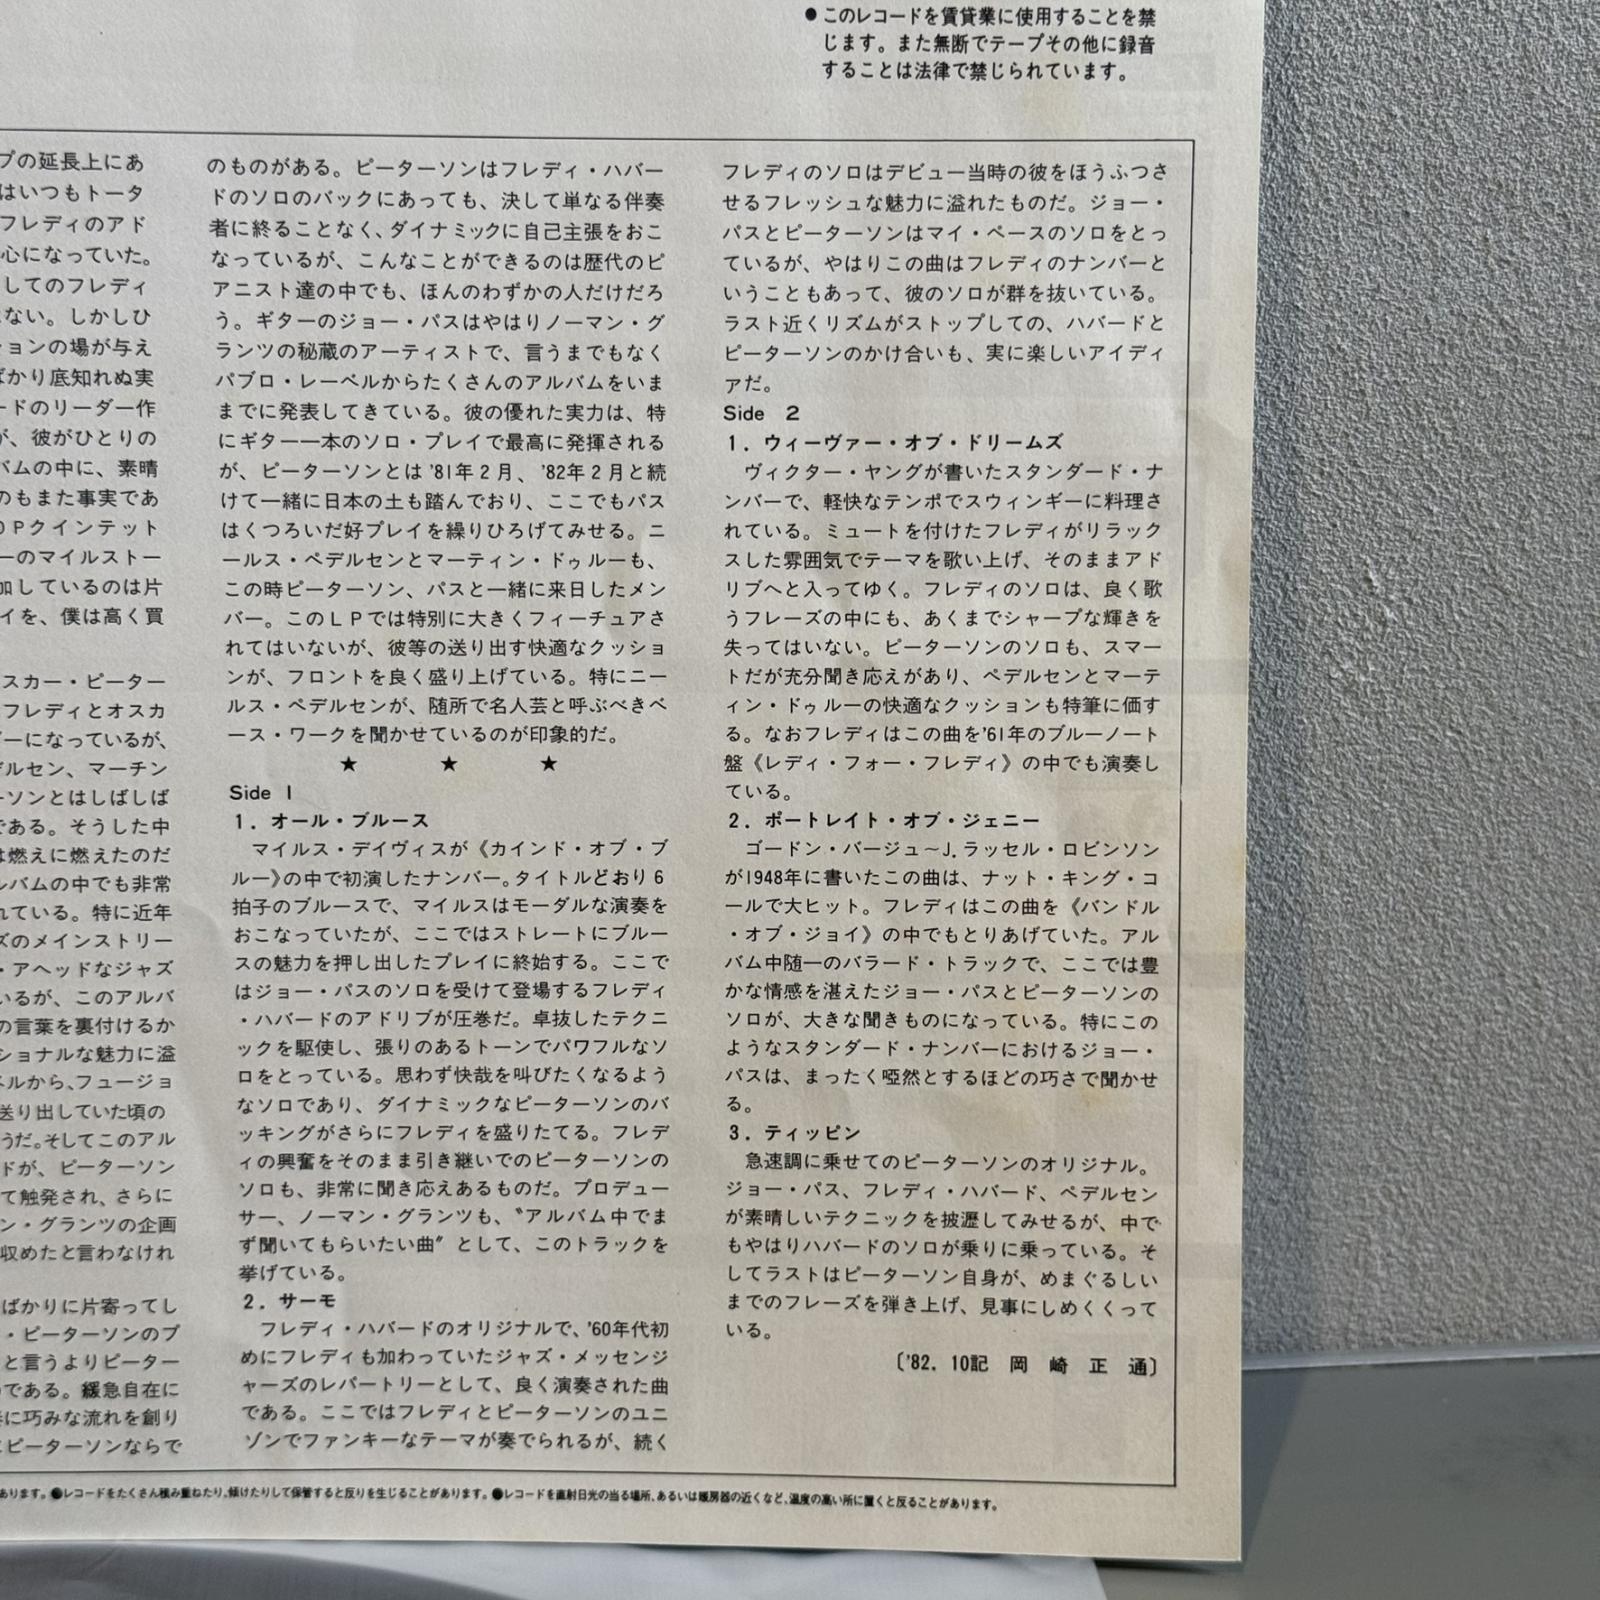 ●このレコードを賃貸業に使用することを禁
じます。また無断でテープその他に録音
することは法律で禁じられています。
プの延長上にあ
はいつもトータ
フレディのアド
心になっていた。
してのフレディ
ない。しかしひ
ョンの場が与え
ばかり底知れぬ実
ードのリーダー作
が、彼がひとりの
バムの中に、素晴
のもまた事実であ
OPクインテット
ーのマイルストー
加しているのは片
イを、僕は高く買
スカー・ピーター
フレディとオスカ
ーになっているが、
デルセン、マーチン
ーソンとはしばしば
である。そうした中
は燃えに燃えたのだ
ルバムの中でも非常
れている。特に近年
ズのメインストリー
・アヘッドなジャズ
いるが、このアルバ
の言葉を裏付けるか
ショナルな魅力に溢
ベルから、フュージョ
送り出していた頃の
うだ。そしてこのアル
ドが、ピーターソン
て触発され、さらに
ン・グランツの企画
収めたと言わなけれ
ばかりに片寄ってし
・ピーターソンのブ
と言うよりピーター
である。緩急自在に
に巧みな流れを創り
ピーターソンならで
のものがある。ピーターソンはフレディ・ハバー
ドのソロのバックにあっても、決して単なる伴奏
者に終ることなく、ダイナミックに自己主張をおこ
なっているが、こんなことができるのは歴代のピ
アニスト達の中でも、ほんのわずかの人だけだろ
う。ギターのジョー・パスはやはりノーマン・グ
ランツの秘蔵のアーティストで、言うまでもなく
パブロ・レーベルからたくさんのアルバムをいま
までに発表してきている。彼の優れた実力は、特
にギター一本のソロ・プレイで最高に発揮される
が、ピーターソンとは'81年2月、'82年2月と続
けて一緒に日本の土も踏んでおり、ここでもパス
はくつろいだ好プレイを繰りひろげてみせる。ニ
ールス・ペデルセンとマーティン・ドゥルーも、
この時ピーターソン、パスと一緒に来日したメン
バー。このLPでは特別に大きくフィーチュアさ
れてはいないが、彼等の送り出す快適なクッショ
ンが、フロントを良く盛り上げている。特にニー
ルス・ペデルセンが、随所で名人芸と呼ぶべきベ
ース・ワークを聞かせているのが印象的だ。
★ ★ ★
Side 1
1. オール・ブルース
マイルス・デイヴィスが《カインド・オブ・ブ
ルー》の中で初演したナンバー。タイトルどおり6
拍子のブルースで、マイルスはモーダルな演奏を
おこなっていたが、ここではストレートにブルー
スの魅力を押し出したプレイに終始する。ここで
はジョー・パスのソロを受けて登場するフレディ
・ハバードのアドリブが圧巻だ。卓抜したテクニ
ックを駆使し、張りのあるトーンでパワフルなソ
ロをとっている。思わず快哉を叫びたくなるよう
なソロであり、ダイナミックなピーターソンのバ
ッキングがさらにフレディを盛りたてる。フレデ
ィの興奮をそのまま引き継いでのピーターソンの
ソロも、非常に聞き応えあるものだ。プロデュー
サー、ノーマン・グランツも、〝アルバム中でま
ず聞いてもらいたい曲〟として、このトラックを
挙げている。
2. サーモ
フレディ・ハバードのオリジナルで、'60年代初
めにフレディも加わっていたジャズ・メッセンジ
ャーズのレパートリーとして、良く演奏された曲
である。ここではフレディとピーターソンのユニ
ゾンでファンキーなテーマが奏でられるが、続く
フレディのソロはデビュー当時の彼をほうふつさ
せるフレッシュな魅力に溢れたものだ。ジョー・
パスとピーターソンはマイ・ペースのソロをとっ
ているが、やはりこの曲はフレディのナンバーと
いうこともあって、彼のソロが群を抜いている。
ラスト近くリズムがストップしての、ハバードと
ピーターソンのかけ合いも、実に楽しいアイディ
アだ。
Side 2
1. ウィーヴァー・オブ・ドリームズ
ヴィクター・ヤングが書いたスタンダード・ナ
ンバーで、軽快なテンポでスウィンギーに料理さ
れている。ミュートを付けたフレディがリラック
スした雰囲気でテーマを歌い上げ、そのままアド
リブへと入ってゆく。フレディのソロは、良く歌
うフレーズの中にも、あくまでシャープな輝きを
失ってはいない。ピーターソンのソロも、スマー
トだが充分聞き応えがあり、ペデルセンとマーテ
ィン・ドゥルーの快適なクッションも特筆に価す
る。なおフレディはこの曲を'61年のブルーノート
盤《レディ・フォー・フレディ》の中でも演奏し
ている。
2. ポートレイト・オブ・ジェニー
ゴードン・バージュ～J.ラッセル・ロビンソン
が1948年に書いたこの曲は、ナット・キング・コ
ールで大ヒット。フレディはこの曲を《バンドル
・オブ・ジョイ》の中でもとりあげていた。アル
バム中随一のバラード・トラックで、ここでは豊
かな情感を湛えたジョー・パスとピーターソンの
ソロが、大きな聞きものになっている。特にこの
ようなスタンダード・ナンバーにおけるジョー・
パスは、まったく啞然とするほどの巧さで聞かせ
る。
3. ティッピン
急速調に乗せてのピーターソンのオリジナル。
ジョー・パス、フレディ・ハバード、ペデルセン
が素晴しいテクニックを披瀝してみせるが、中で
もやはりハバードのソロが乗りに乗っている。そ
してラストはピーターソン自身が、めまぐるしい
までのフレーズを弾き上げ、見事にしめくくって
いる。
〔'82. 10記 岡 崎 正 通〕
あります。●レコードをたくさん積み重ねたり、傾けたりして保管すると反りを生じることがあります。●レコードを直射日光の当る場所、あるいは暖房器の近くなど、温度の高い所に置くと反ることがあります。